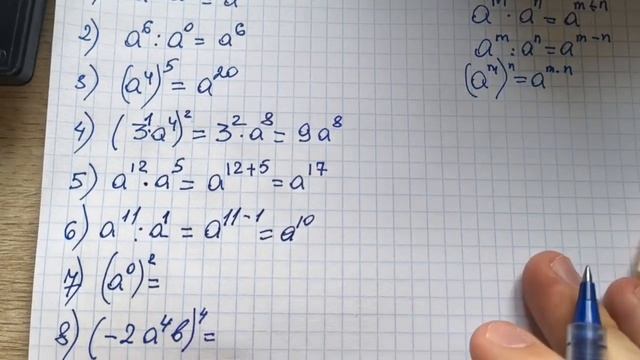 2) a⁶ : a⁰ = a⁶
3) (a⁴)⁵ = a²⁰
4) (3¹·a⁴)² = 3²·a⁸ = 9a⁸
5) a¹²·a⁵ = a¹²⁺⁵ = a¹⁷
6) a¹¹:a¹ = a¹¹⁻¹ = a¹⁰
7) (a⁰)² =
8) (-2a⁴b)⁴ =
aᵐ·aⁿ = aᵐ⁺ⁿ
aᵐ:aⁿ = aᵐ⁻ⁿ
(aᵐ)ⁿ = aᵐ·ⁿ